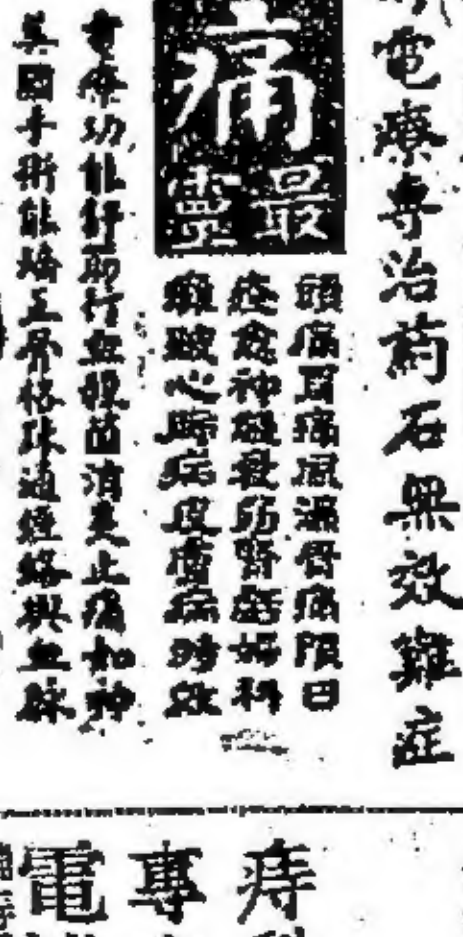 電療專治药石無效難症
痛
最靈
頭痛耳痛風濕骨痛限日
痊愈神經衰弱腎虧婦科
癱跛心臟病皮膚病特效
電療功能舒筋行血殺菌消炎止痛如神
美國手術能矯正骨格疎通經絡與血脉
痔
專
電